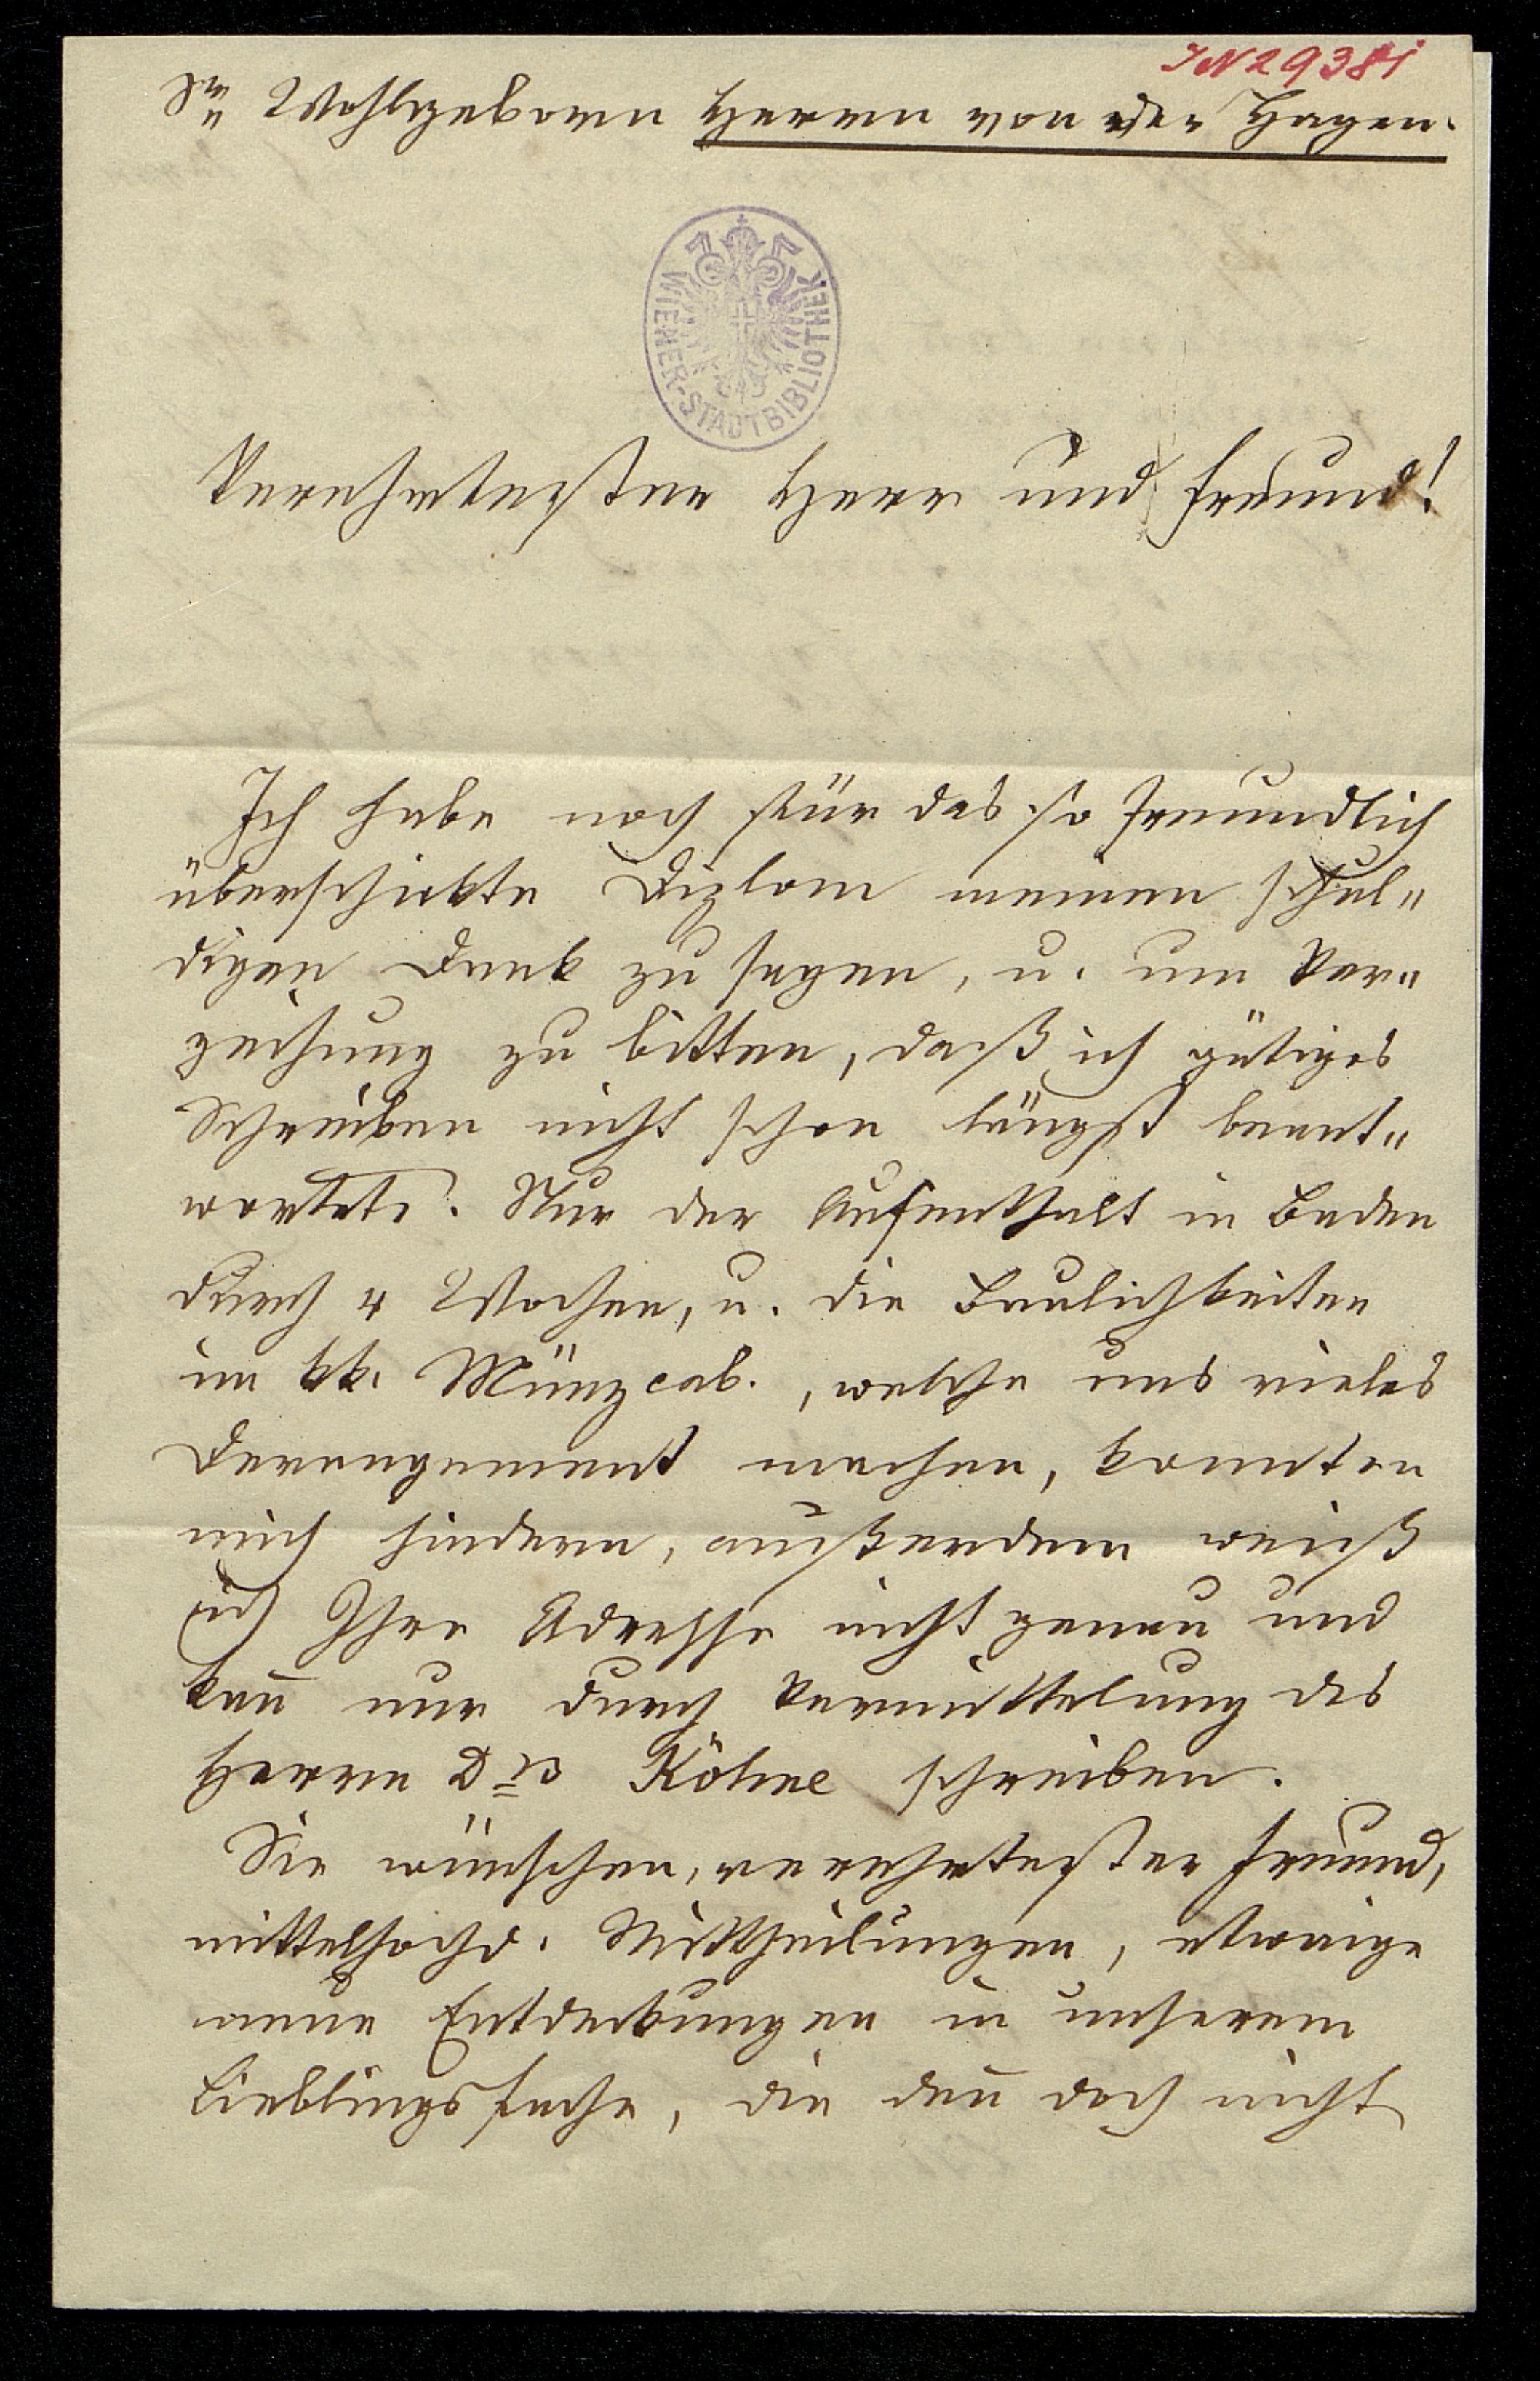 IN 29381
Sr. Wohlgeborn Herrn von der Hagen.
WIENER-STADTBIBLIOTHEK
Verehrtester Herr und Freund!
Ich habe noch für das so freundlich
überschickte Diplom meinen schul„
digen Dank zu sagen, u. um Ver„
zeihung zu bitten, daß ich gütiges
Schreiben nicht schon längst beant„
wortete. Nur der Aufenthalt in Baden
durch 4 Wochen, u. die Baulichkeiten
im kk. Münzcab., welche uns vieles
Derangement machen, konnten
mich hindern, außerdem weiß
ich Ihre Adresse nicht genau und
kañ nur durch Vermittelung des
Herrn Drs Köhne schreiben.
Sie wünschen, verehrtester Freund,
mittelhochd. Mittheilungen, etwaige
neue Entdeckungen in unserem
Lieblingsfache, die deñ doch nicht